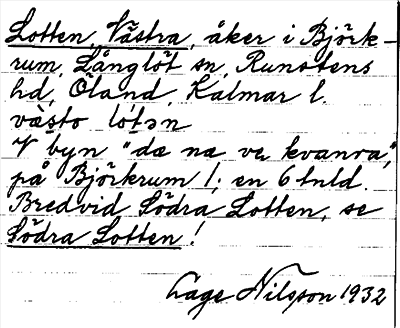 Lotten, Västra, åker i Björk-
rum, Långlöt sn, Runstens
hd, Öland, Kalmar l.
vàsto lótən
V byn "da na ve kvanra",
på Björkrum 1; en 6 tnld.
Bredvid Södra Lotten, se
Södra Lotten!
Lage Nilsson 1932